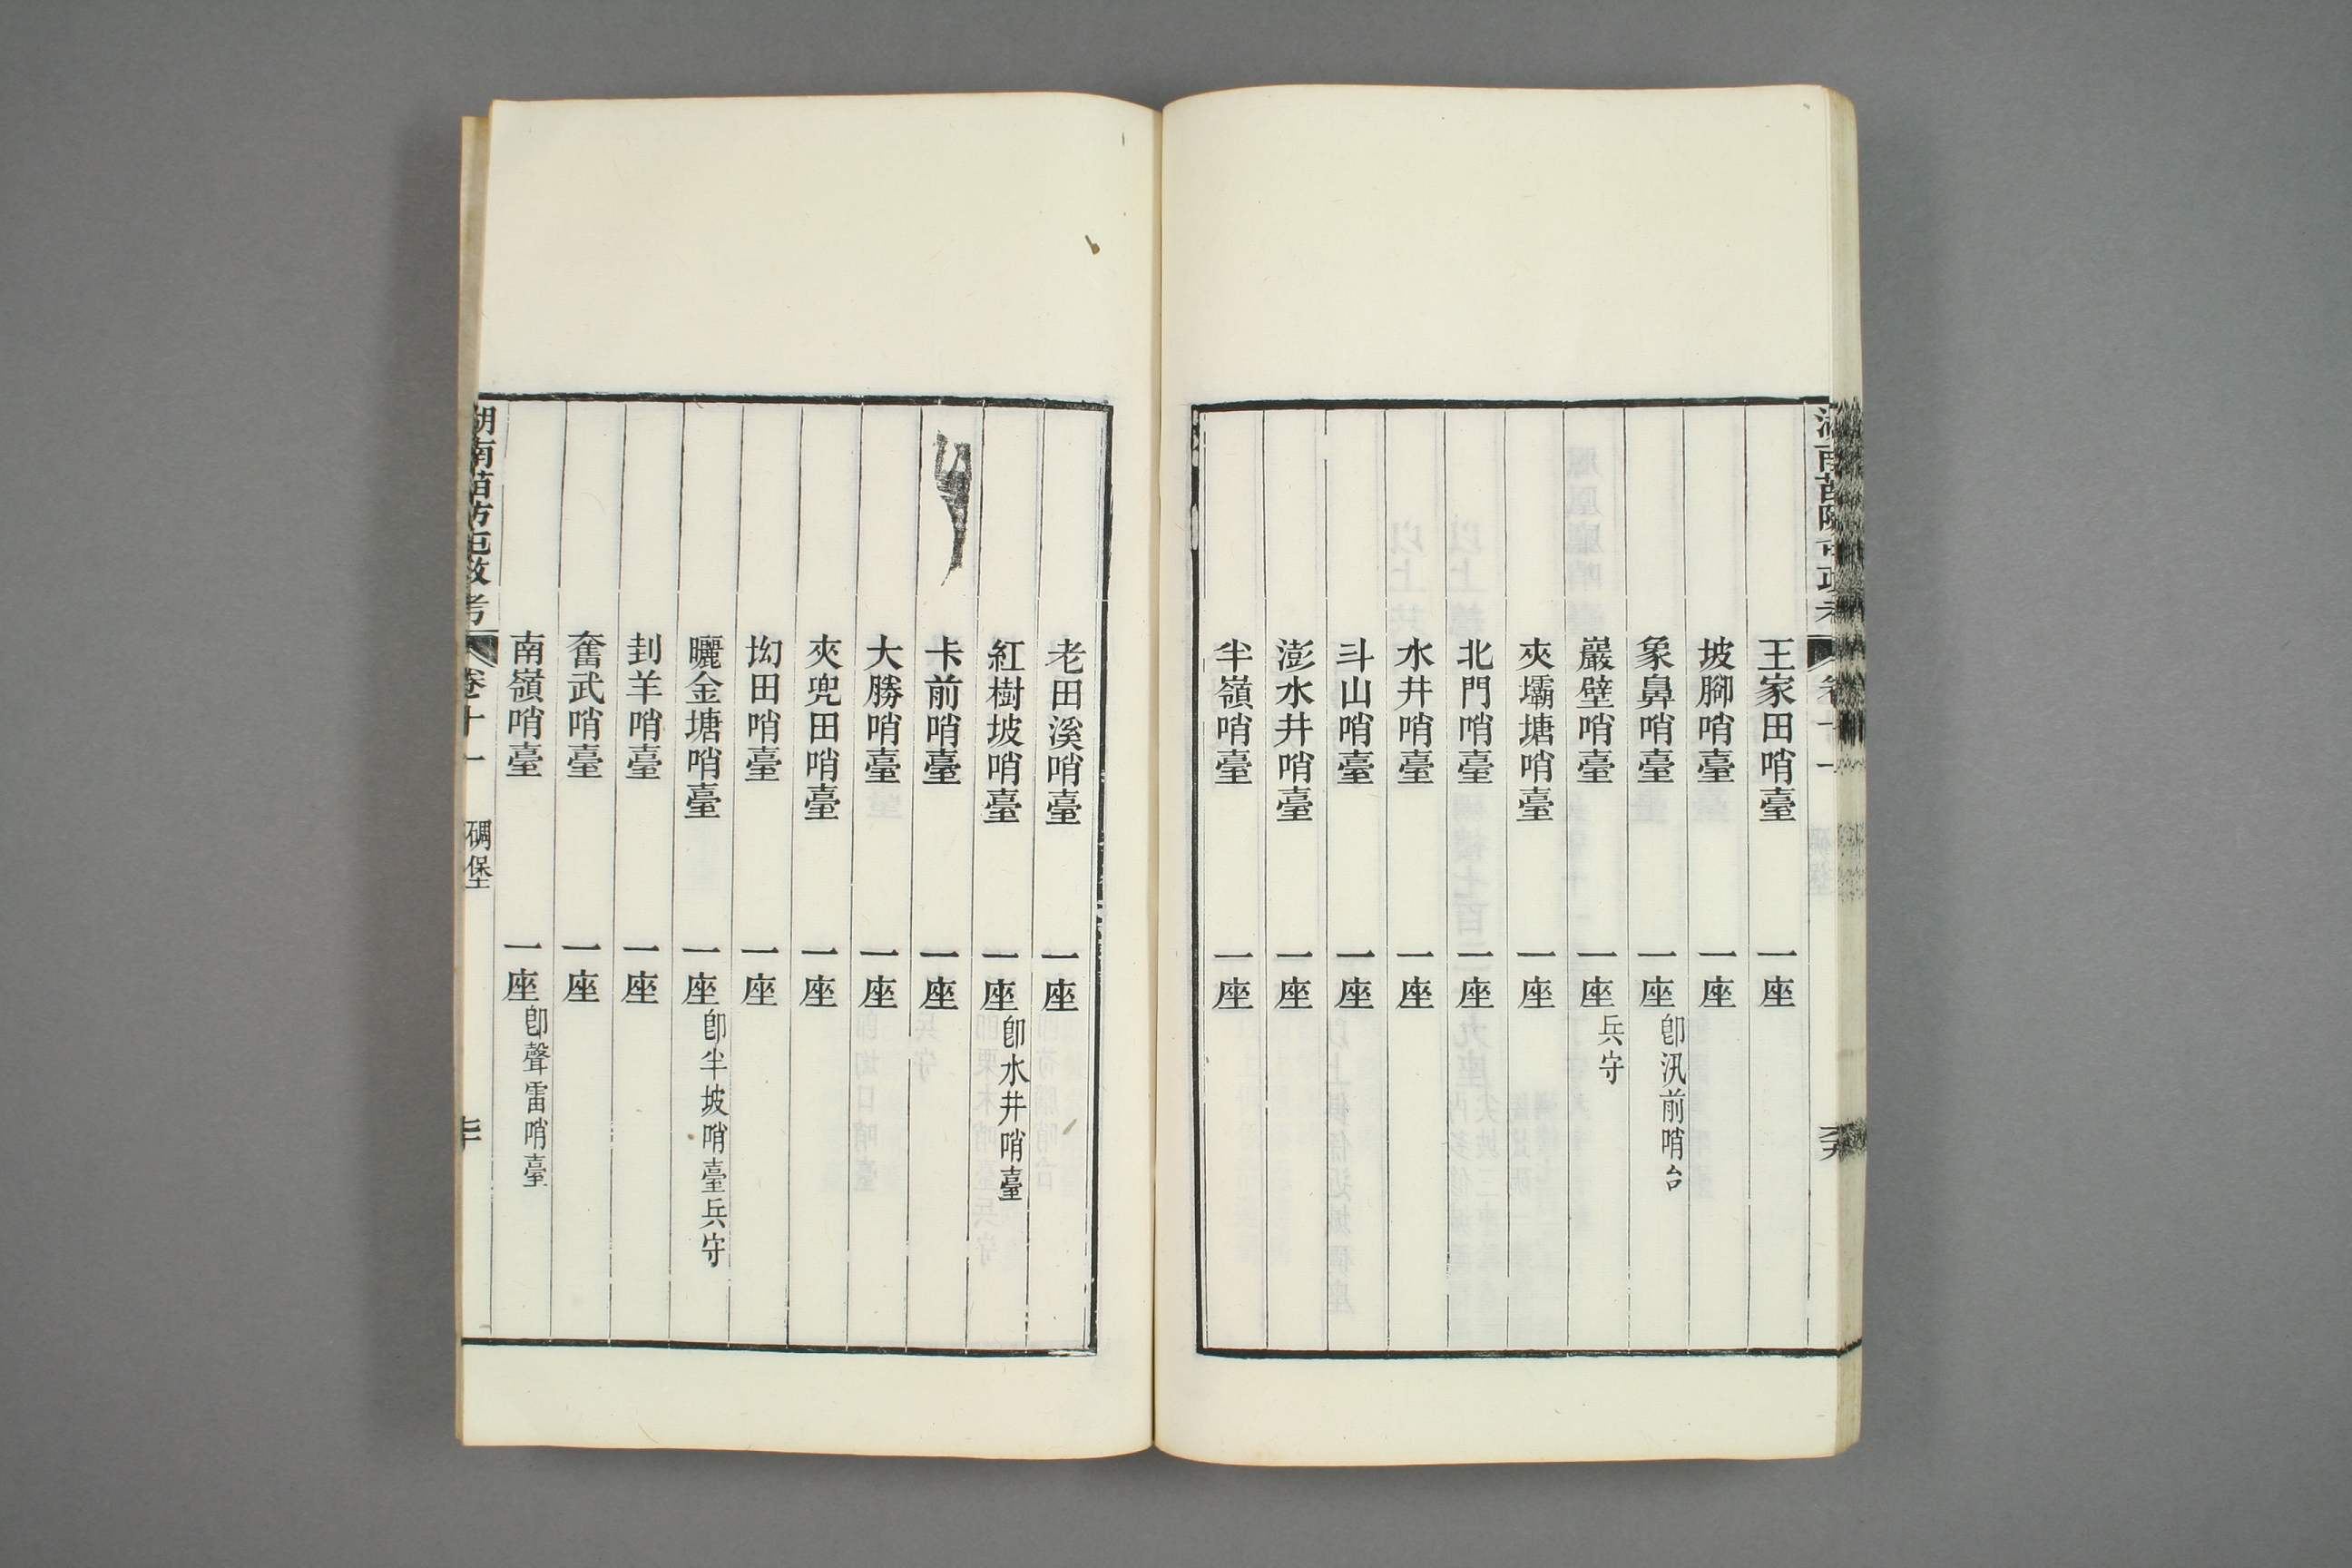 王家田哨臺 一座
坡腳哨臺 一座
象鼻哨臺 一座 卽汛前哨台
巖壁哨臺 一座 兵守
夾壩塘哨臺 一座
北門哨臺 一座
水井哨臺 一座
斗山哨臺 一座
澎水井哨臺 一座
半嶺哨臺 一座
老田溪哨臺 一座
紅樹坡哨臺 一座 卽水井哨臺
卡前哨臺 一座
大勝哨臺 一座
夾兜田哨臺 一座
㘭田哨臺 一座
曬金塘哨臺 一座 卽半坡哨臺兵守
刲羊哨臺 一座
奮武哨臺 一座
南嶺哨臺 一座 卽聲雷哨臺
湖南苗防屯政考 卷十一 碉堡